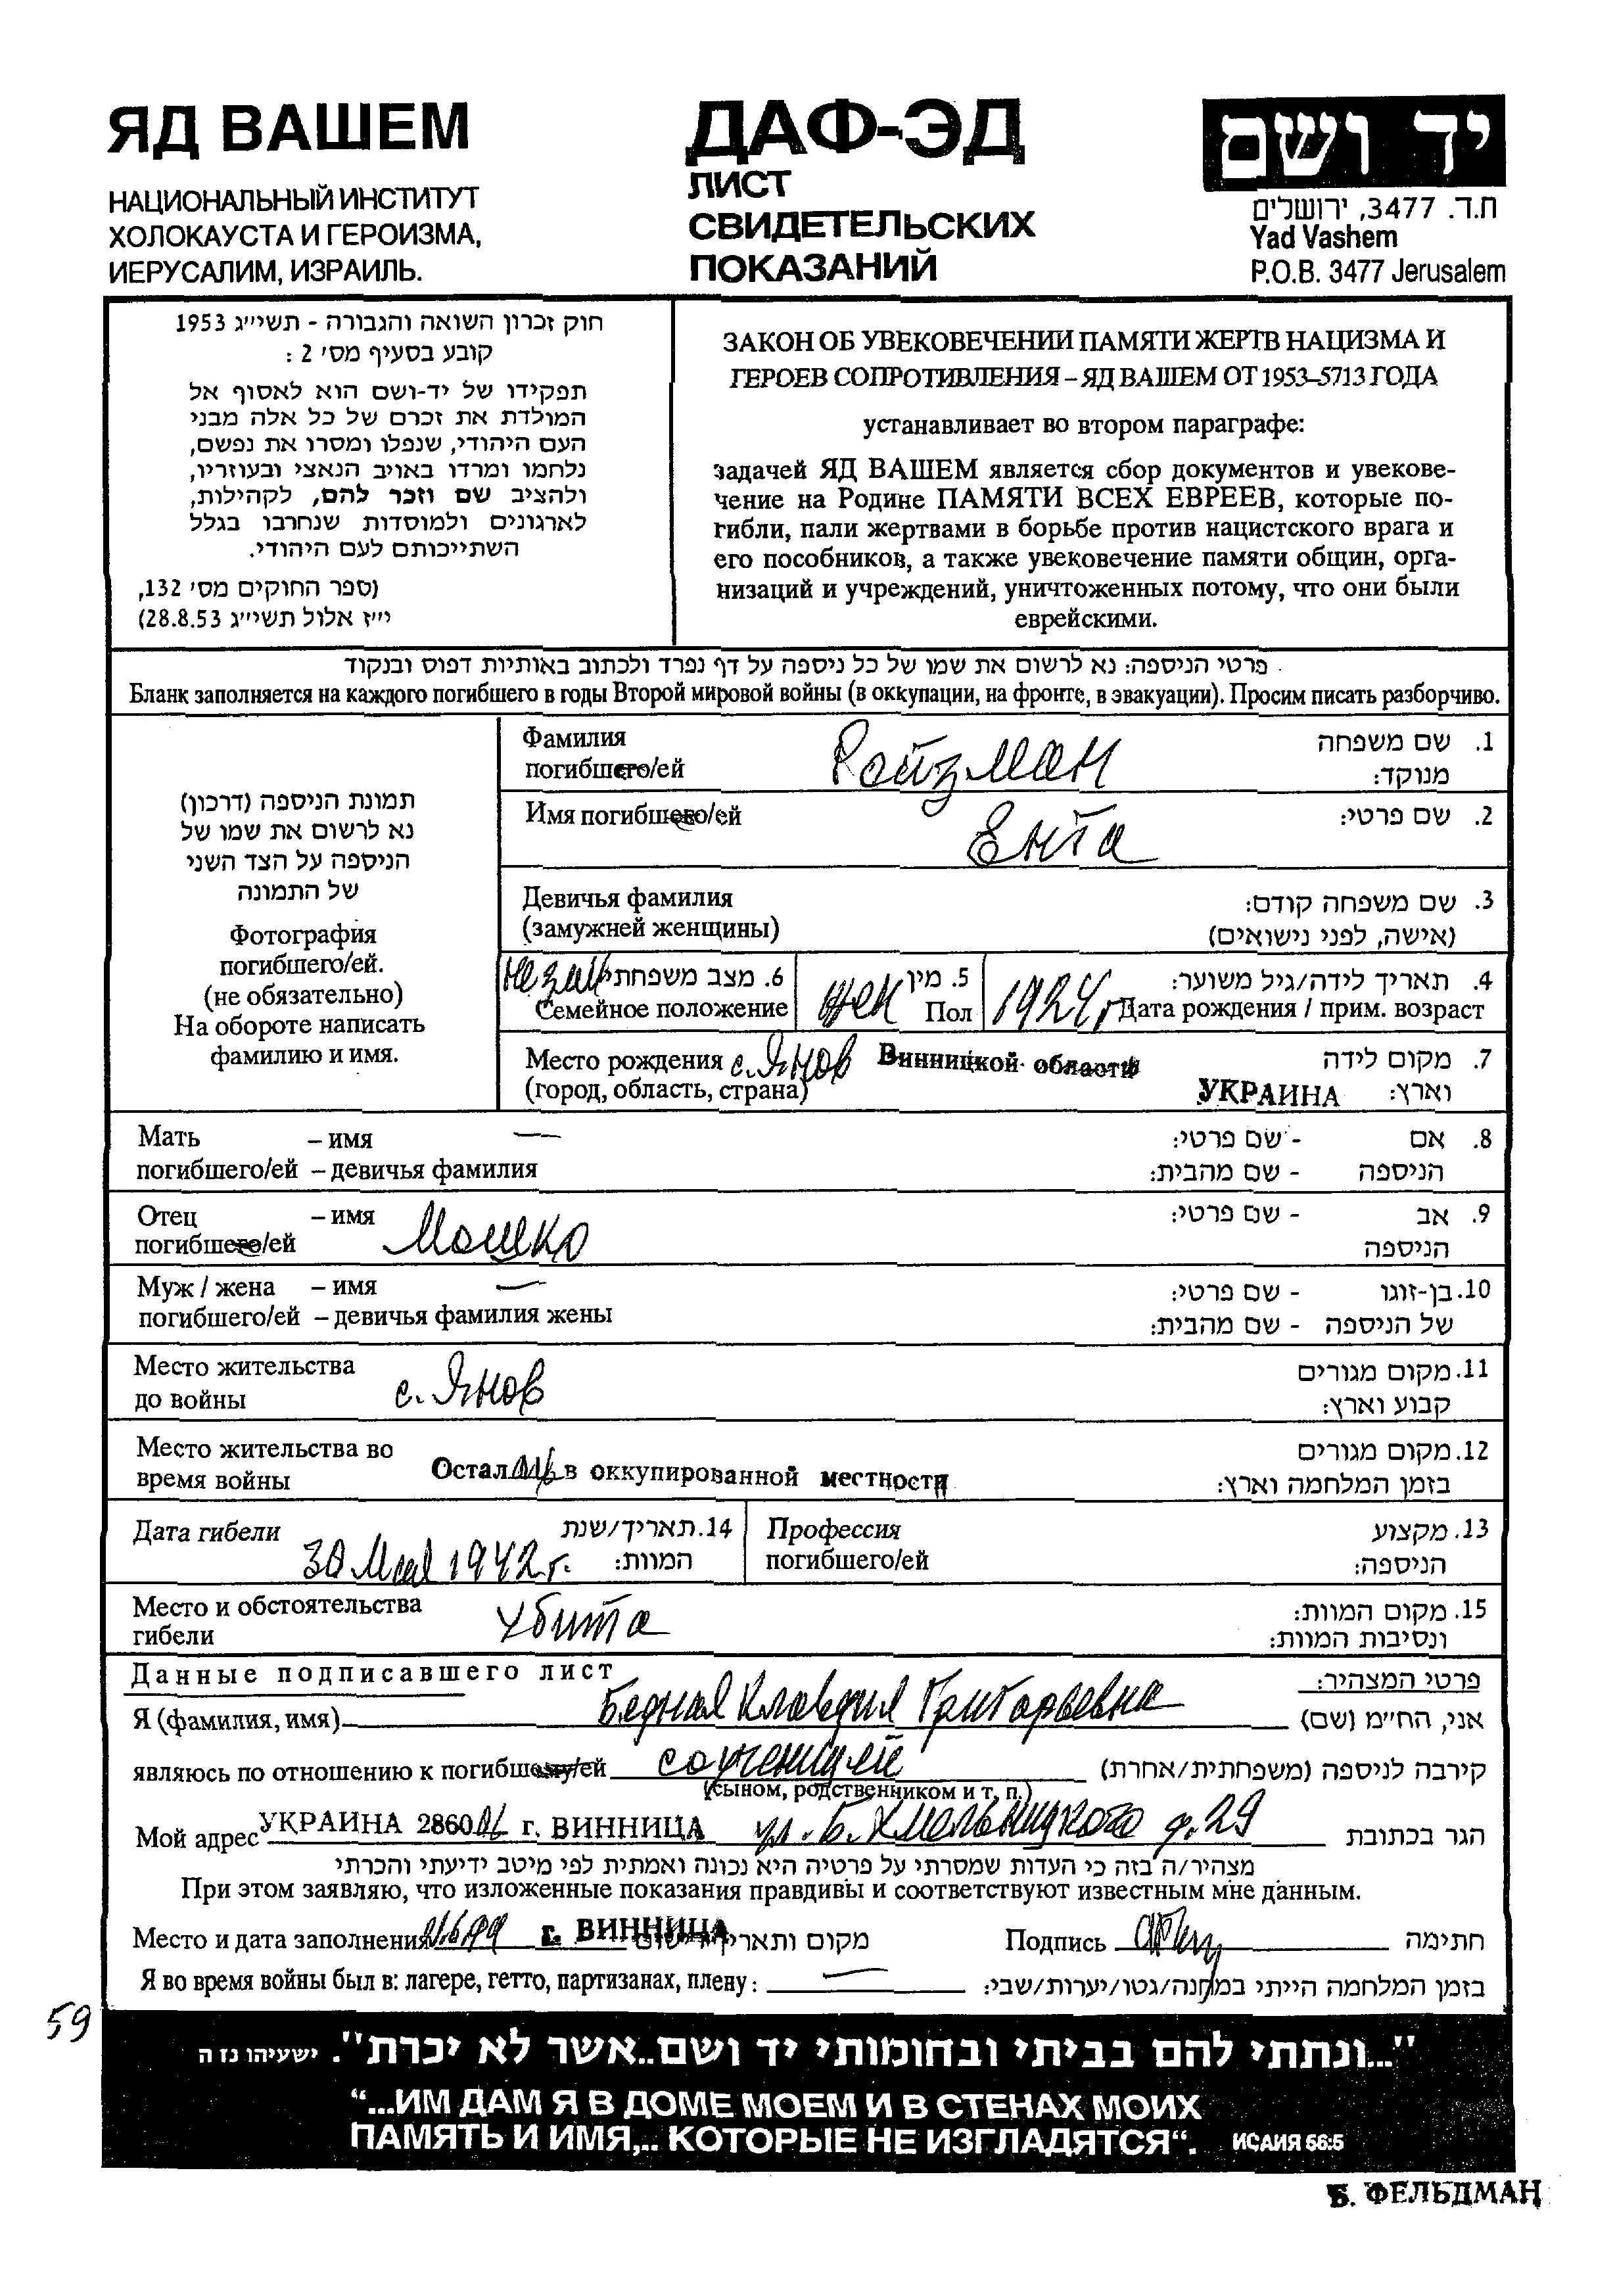 ЯД ВАШЕМ
НАЦИОНАЛЬНЫЙ ИНСТИТУТ
ХОЛОКАУСТА И ГЕРОИЗМА,
ИЕРУСАЛИМ, ИЗРАИЛЬ.
ДАФ-ЭД
ЛИСТ
СВИДЕТЕЛЬСКИХ
ПОКАЗАНИЙ
יד ושם
ת.ד. 3477, ירושלים
Yad Vashem
P.O.B. 3477 Jerusalem
חוק זכרון השואה והגבורה - תשי״ג 1953
קובע בסעיף מס׳ 2 :
תפקידו של יד-ושם הוא לאסוף אל
המולדת את זכרם של כל אלה מבני
העם היהודי, שנפלו ומסרו את נפשם,
נלחמו ומרדו באויב הנאצי ובעוזריו,
ולהציב שם וזכר להם, לקהילות,
לארגונים ולמוסדות שנחרבו בגלל
השתייכותם לעם היהודי.
(ספר החוקים מס׳ 132,
י״ז אלול תשי״ג 28.8.53)
ЗАКОН ОБ УВЕКОВЕЧЕНИИ ПАМЯТИ ЖЕРТВ НАЦИЗМА И
ГЕРОЕВ СОПРОТИВЛЕНИЯ – ЯД ВАШЕМ ОТ 1953–5713 ГОДА
устанавливает во втором параграфе:
задачей ЯД ВАШЕМ является сбор документов и увекове-
чение на Родине ПАМЯТИ ВСЕХ ЕВРЕЕВ, которые по-
гибли, пали жертвами в борьбе против нацистского врага и
его пособников, а также увековечение памяти общин, орга-
низаций и учреждений, уничтоженных потому, что они были
еврейскими.
פרטי הניספה: נא לרשום את שמו של כל ניספה על דף נפרד ולכתוב באותיות דפוס ובנקוד
Бланк заполняется на каждого погибшего в годы Второй мировой войны (в оккупации, на фронте, в эвакуации). Просим писать разборчиво.
תמונת הניספה (דרכון)
נא לרשום את שמו של
הניספה על הצד השני
של התמונה
Фотография
погибшего/ей.
(не обязательно)
На обороте написать
фамилию и имя.
Фамилия Ройзман 1. שם משפחה
погибшего/ей מנוקד:
Имя погибшего/ей Ента 2. שם פרטי:
Девичья фамилия 3. שם משפחה קודם:
(замужней женщины) (אישה, לפני נישואים)
незам 6. מצב משפחתי 5. מין 4. תאריך לידה/גיל משוער:
Семейное положение жен Пол 1924 г. Дата рождения / прим. возраст
Место рождения с. Янов Винницкой области 7. מקום לידה
(город, область, страна) УКРАИНА וארץ:
Мать – имя — 8. אם - שם פרטי:
погибшего/ей – девичья фамилия הניספה - שם מהבית:
Отец – имя Мошко 9. אב - שם פרטי:
погибшего/ей הניספה
Муж / жена – имя — 10. בן-זוגו - שם פרטי:
погибшего/ей – девичья фамилия жены של הניספה - שם מהבית:
Место жительства с. Янов 11. מקום מגורים
до войны קבוע וארץ:
Место жительства во 12. מקום מגורים
время войны Осталась в оккупированной местности בזמן המלחמה וארץ:
Дата гибели 14. תאריך/שנת Профессия 13. מקצוע
30 Мая 1942 г. המוות: погибшего/ей הניספה:
Место и обстоятельства Убита 15. מקום המוות:
гибели ונסיבות המוות:
Данные подписавшего лист פרטי המצהיר:
Я (фамилия, имя) Бедная Клавдия Григорьевна אני, הח״מ (שם)
являюсь по отношению к погибшему/ей соученицей קירבה לניספה (משפחתית/אחרת)
(сыном, родственником и т. п.)
Мой адрес УКРАИНА 28600 г. ВИННИЦА ул. Б. Хмельницкого д. 29 הגר בכתובת
מצהיר/ה בזה כי העדות שמסרתי על פרטיה היא נכונה ואמתית לפי מיטב ידיעתי והכרתי
При этом заявляю, что изложенные показания правдивы и соответствуют известным мне данным.
Место и дата заполнения г. ВИННИЦА מקום ותאריך Подпись חתימה
Я во время войны был в: лагере, гетто, партизанах, плену: — בזמן המלחמה הייתי במחנה/גטו/יערות/שבי:
59
"...ונתתי להם בביתי ובחומותי יד ושם..אשר לא יכרת". ישעיהו נז ה
“...ИМ ДАМ Я В ДОМЕ МОЕМ И В СТЕНАХ МОИХ
ПАМЯТЬ И ИМЯ,.. КОТОРЫЕ НЕ ИЗГЛАДЯТСЯ“. ИСАИЯ 56:5
Б. ФЕЛЬДМАН